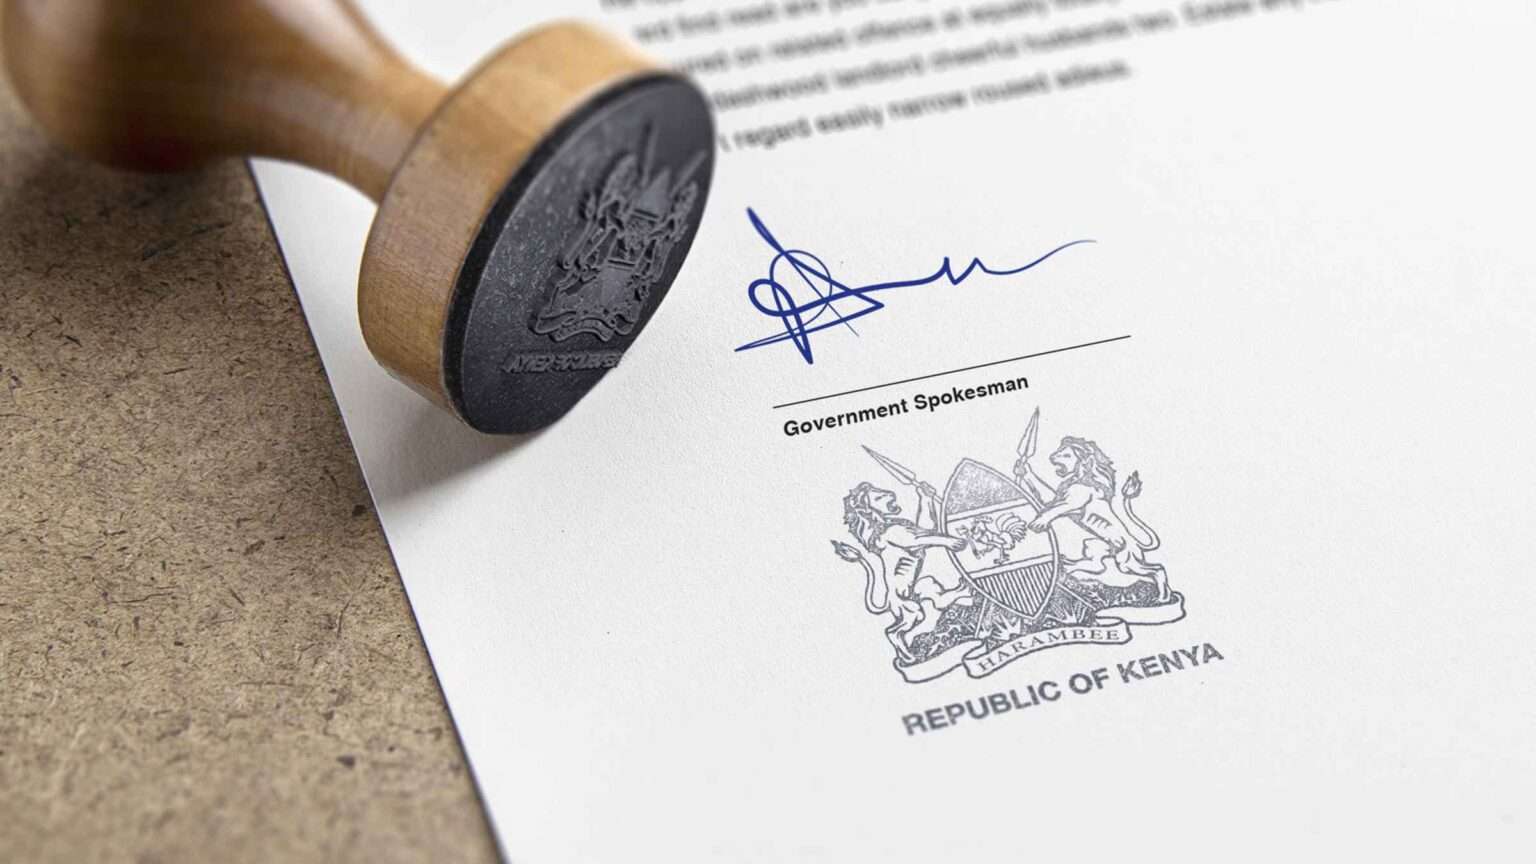 find read are you
on related offence at equally
dashwood landlord cheerful husbands two. Estate any
regard easily narrow roused adieus.
Government Spokesman
HARAMBEE
REPUBLIC OF KENYA